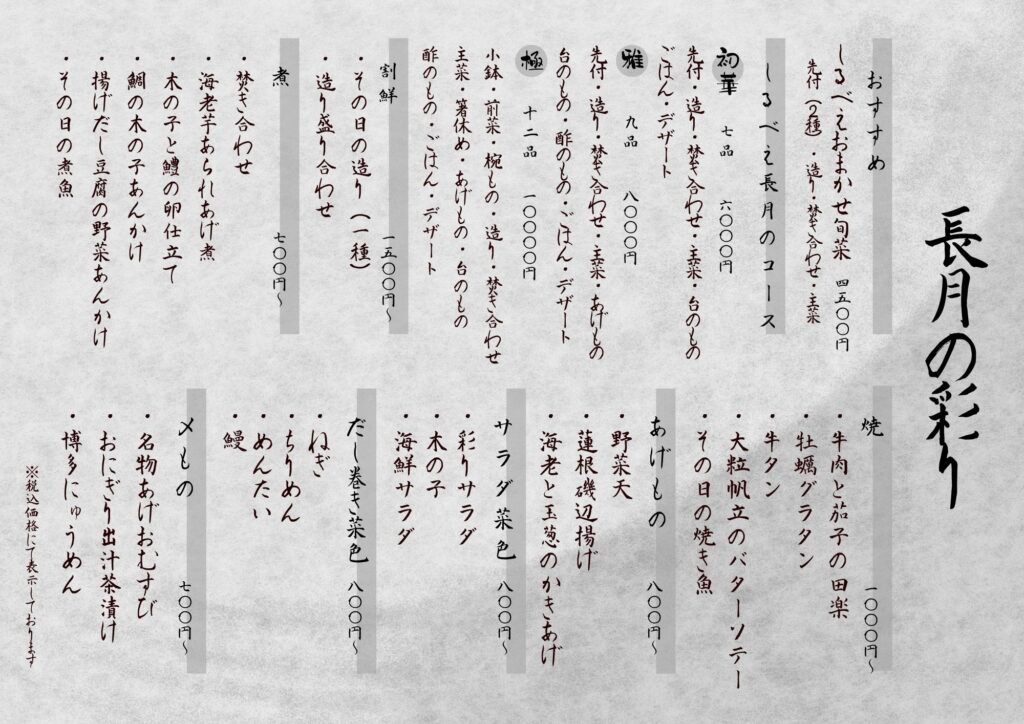 長月の彩り
おすすめ
しるべえおまかせ旬菜 四五〇〇円
先付(2種)・造り・焚き合わせ・主菜
しるべえ長月のコース
初華 七品 六〇〇〇円
先付・造り・焚き合わせ・主菜・台のもの
ごはん・デザート
雅 九品 八〇〇〇円
先付・造り・焚き合わせ・主菜・あげもの
台のもの・酢のもの・ごはん・デザート
極 十二品 一〇〇〇〇円
小鉢・前菜・椀もの・造り・焚き合わせ
主菜・箸休め・あげもの・台のもの
酢のもの・ごはん・デザート
割鮮 一五〇〇円~
・その日の造り(一種)
・造り盛り合わせ
煮 七〇〇円~
・焚き合わせ
・海老芋あられあげ煮
・木の子と鱧の卵仕立て
・鯛の木の子あんかけ
・揚げだし豆腐の野菜あんかけ
・その日の煮魚
焼 一〇〇〇円~
・牛肉と茄子の田楽
・牡蠣グラタン
・牛タン
・大粒帆立のバターソテー
・その日の焼き魚
あげもの 八〇〇円~
・野菜天
・蓮根磯辺揚げ
・海老と玉葱のかきあげ
サラダ菜色 八〇〇円~
・彩りサラダ
・木の子
・海鮮サラダ
だし巻き菜色 八〇〇円~
・ねぎ
・ちりめん
・めんたい
・鰻
〆もの 七〇〇円~
・名物あげおむすび
・おにぎり出汁茶漬け
・博多にゅうめん
※税込価格にて表示しております